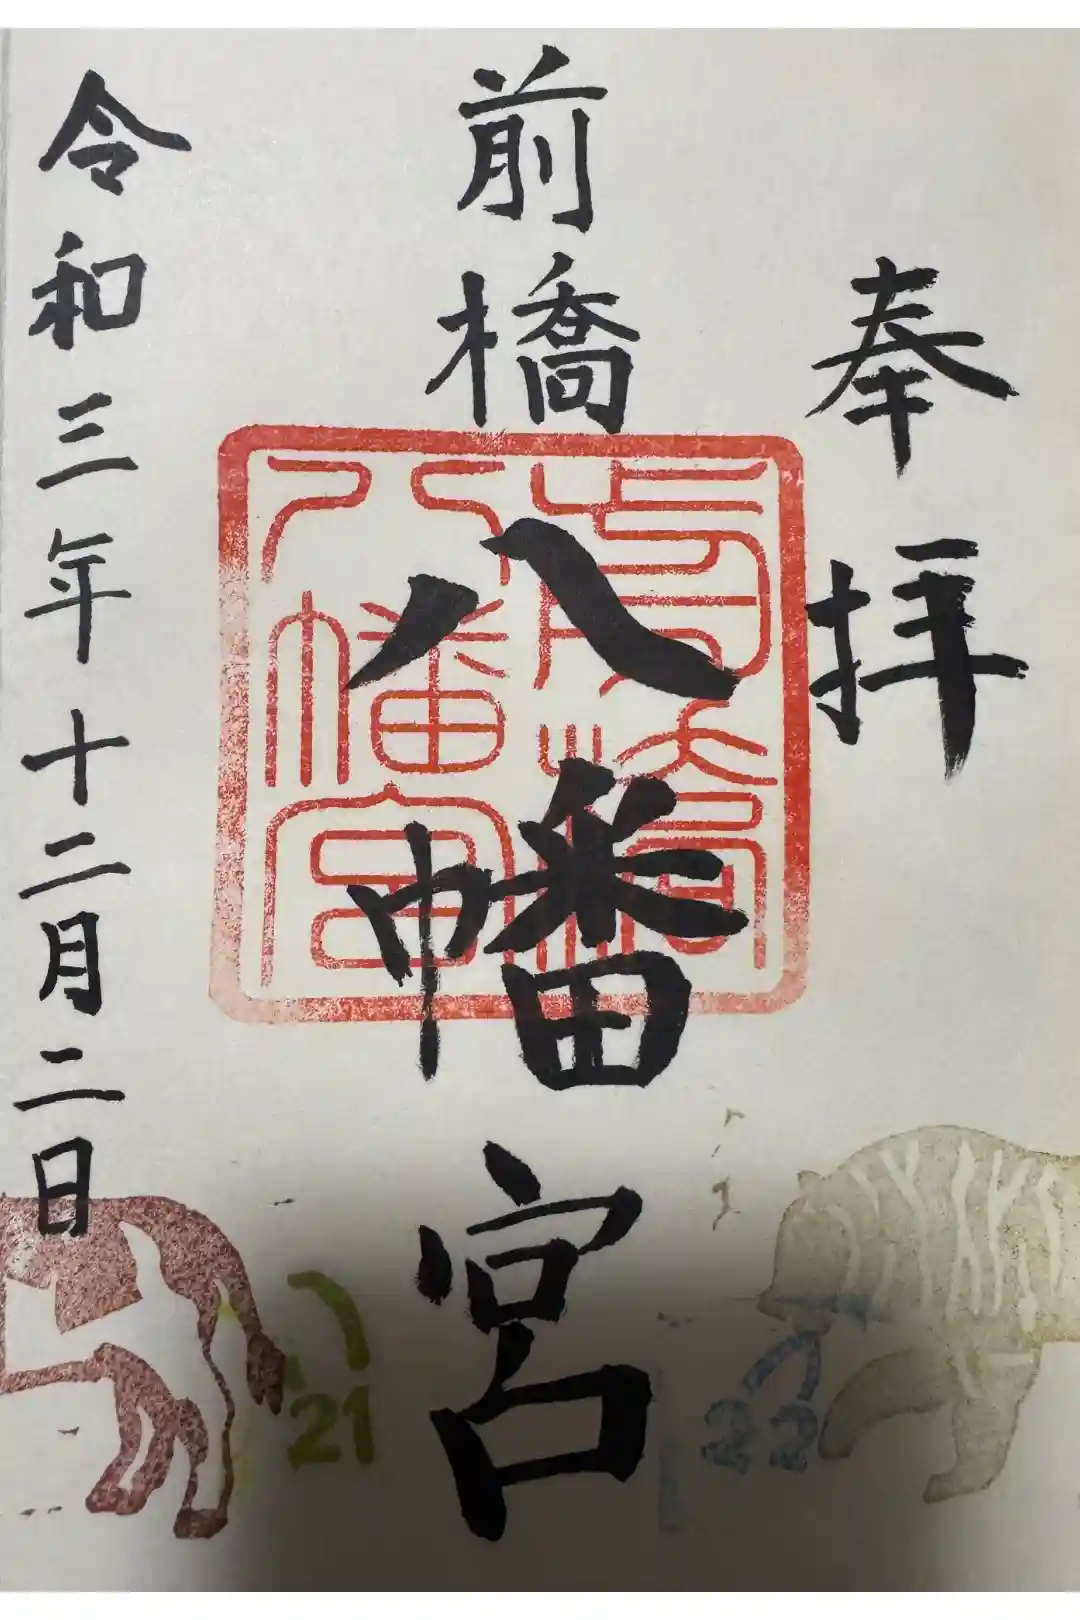 奉拝
前橋
八幡宮
前橋
八幡宮
令和三年十二月二日
21
22